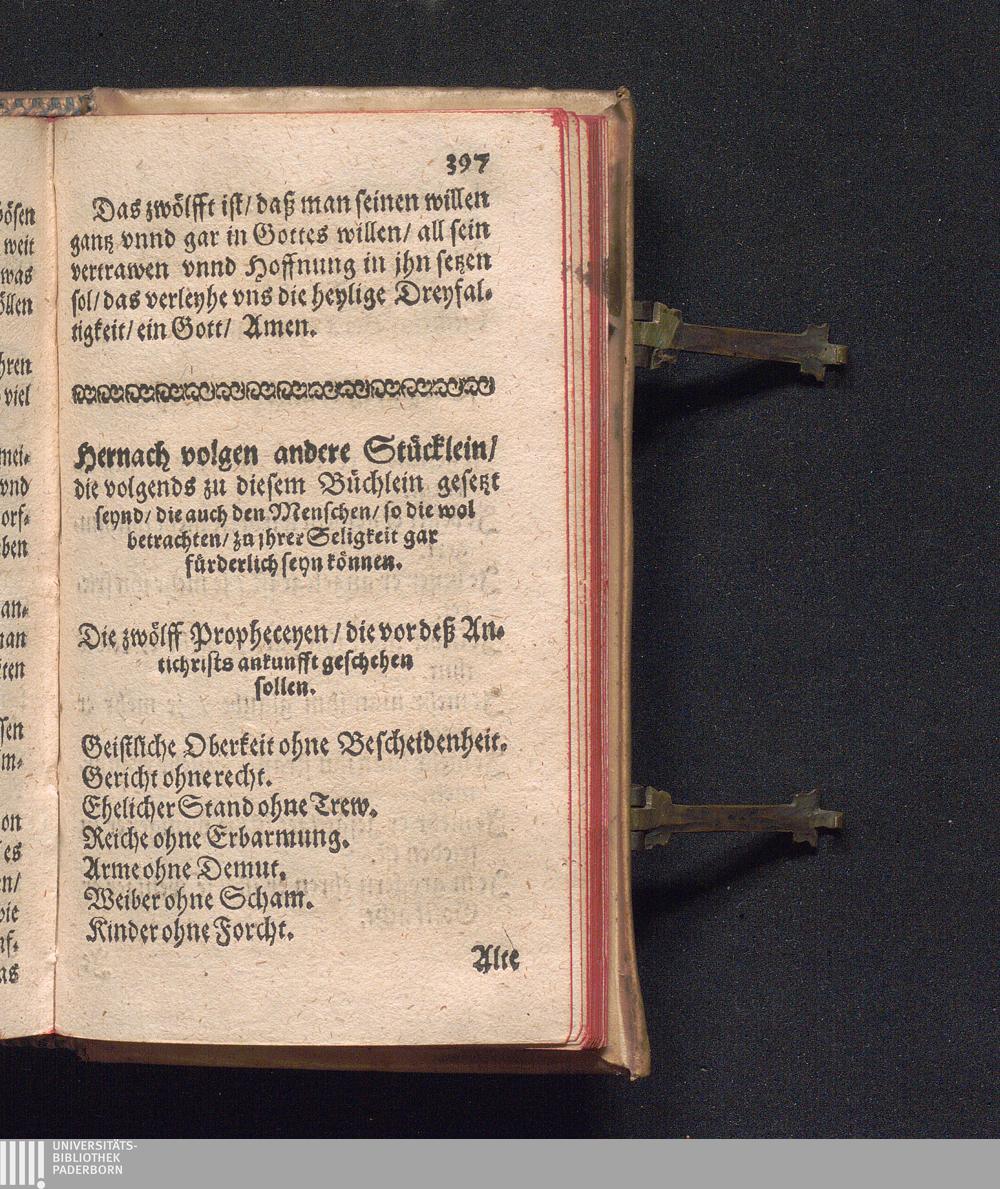 397
Das zwölfft ist/ daß man seinen willen
gantz vnnd gar in Gottes willen/ all sein
vertrawen vnnd Hoffnung in jhn setzen
sol/ das verleyhe vns die heylige Dreyfal-
tigkeit/ ein Gott/ Amen.
Hernach volgen andere Stücklein/
die volgends zu diesem Büchlein gesetzt
seynd/ die auch den Menschen/ so die wol
betrachten/ zu jhrer Seligkeit gar
fürderlich seyn können.
Die zwölff Propheceyen/ die vor deß An-
tichrists ankunfft geschehen
sollen.
Geistliche Oberkeit ohne Bescheidenheit.
Gericht ohne recht.
Ehelicher Stand ohne Trew.
Reiche ohne Erbarmung.
Arme ohne Demut.
Weiber ohne Scham.
Kinder ohne Forcht.
Alte
ösen
weit
was
öllen
hren
viel
mei-
vnd
orf-
ben
an-
man
ten
sen
m-
on
es
en/
wie
nf-
as
UNIVERSITÄTS-
BIBLIOTHEK
PADERBORN